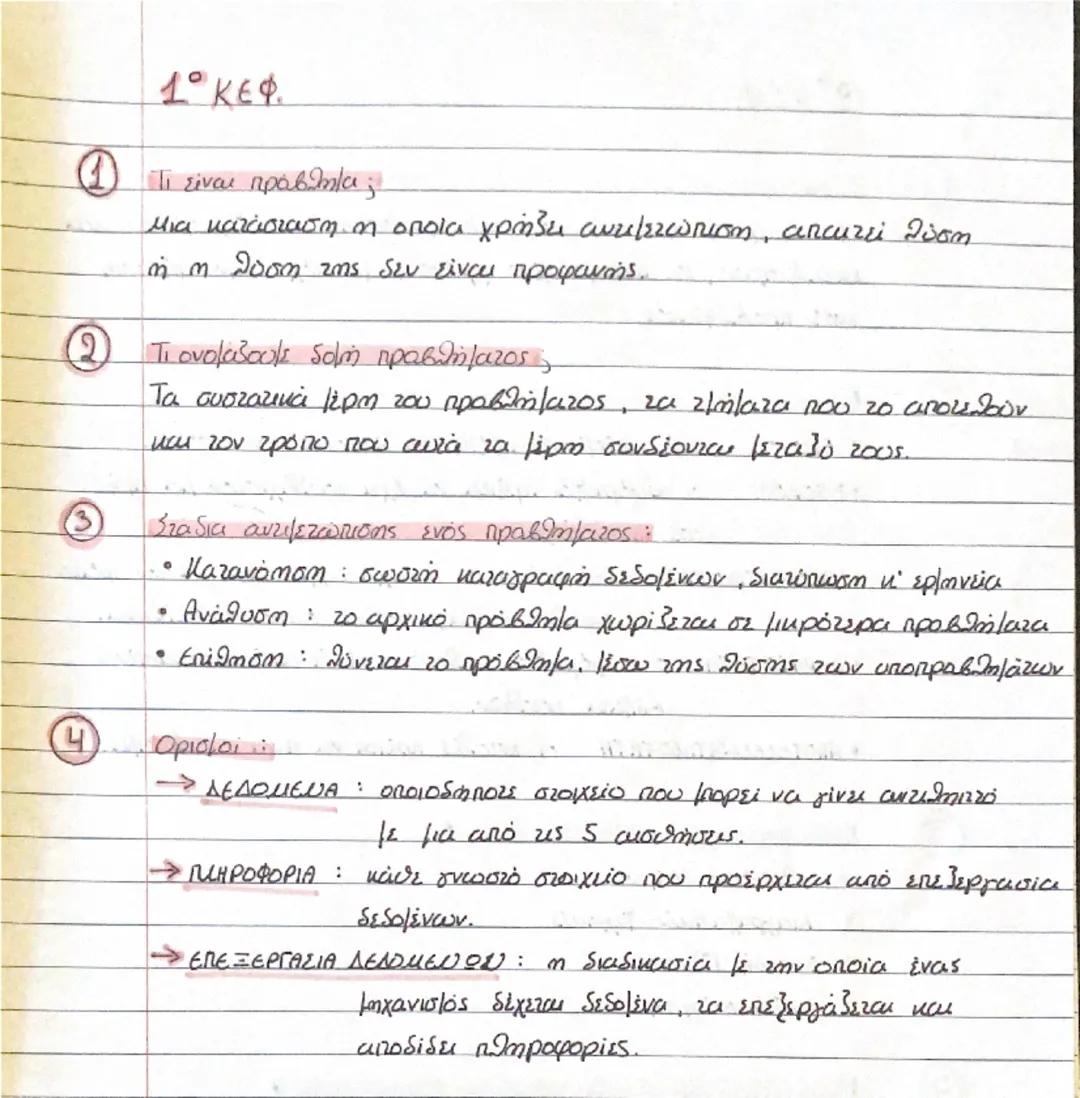 1° ΚΕΦ.
① Τι είναι πρόβλημα ;
Μια κατάσταση η οποία χρήζει αντιμετώπιση, απαιτεί λύση
ή η λύση της δεν είναι προφανής.
② Τι ονομάζουμε δομή προβλήματος ;
Τα συστατικά μέρη του προβλήματος, τα τμήματα που το αποτελούν
και τον τρόπο που αυτά τα μέρη συνδέονται μεταξύ τους.
③ Στάδια αντιμετώπισης ενός προβλήματος :
• Κατανόηση : σωστή καταγραφή δεδομένων, διατύπωση κ' ερμηνεία
• Ανάλυση : το αρχικό πρόβλημα χωρίζεται σε μικρότερα προβλήματα
• Επίλυση : λύνεται το πρόβλημα, μέσω της λύσης των υποπροβλημάτων
④ Ορισμοί :
→ ΔΕΔΟΜΕΝΑ : οποιοδήποτε στοιχείο που μπορεί να γίνει αντιληπτό
με μια από τις 5 αισθήσεις.
→ ΠΛΗΡΟΦΟΡΙΑ : κάθε γνωστό στοιχείο που προέρχεται από επεξεργασία
δεδομένων.
→ ΕΠΕΞΕΡΓΑΣΙΑ ΔΕΔΟΜΕΝΩΝ : η διαδικασία με την οποία ένας
μηχανισμός δέχεται δεδομένα, τα επεξεργάζεται και
αποδίδει πληροφορίες.